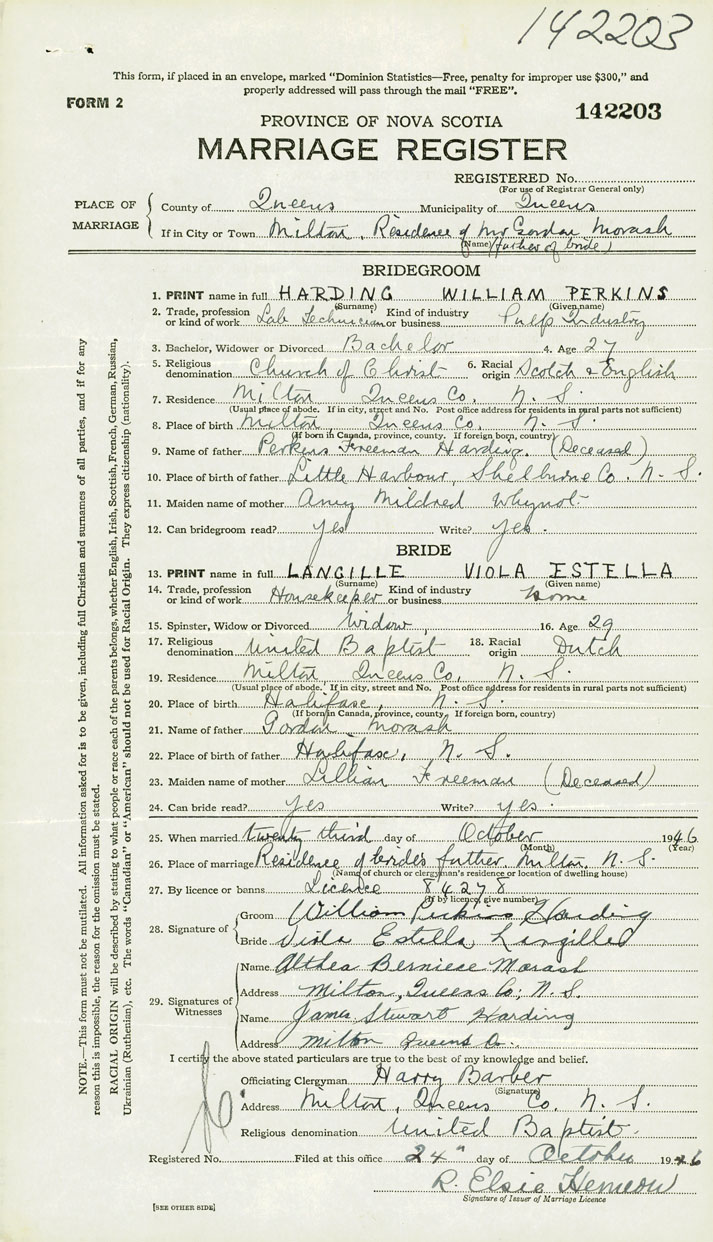 142203
This form, if placed in an envelope, marked "Dominion Statistics—Free, penalty for improper use $300," and
properly addressed will pass through the mail "FREE".
FORM 2
142203
PROVINCE OF NOVA SCOTIA
MARRIAGE REGISTER
REGISTERED No.
(For use of Registrar General only)
PLACE OF MARRIAGE
County of Queens Municipality of Queens
If in City or Town Milton, Residence of Mr Gordon Morash
(Name) (father of bride)
BRIDEGROOM
1. PRINT name in full HARDING WILLIAM PERKINS
(Surname) (Given name)
2. Trade, profession or kind of work Lab Technician Kind of industry or business Pulp Industry
3. Bachelor, Widower or Divorced Bachelor 4. Age 27
5. Religious denomination Church of Christ 6. Racial origin Scotch & English
7. Residence Milton Queens Co. N. S.
(Usual place of abode. If in city, street and No. Post office address for residents in rural parts not sufficient)
8. Place of birth Milton, Queens Co. N. S.
(If born in Canada, province, county. If foreign born, country)
9. Name of father Perkins Freeman Harding. (Deceased)
10. Place of birth of father Little Harbour, Shelburne Co. N. S.
11. Maiden name of mother Amy Mildred Whynot
12. Can bridegroom read? yes Write? yes.
BRIDE
13. PRINT name in full LANGILLE VIOLA ESTELLA
(Surname) (Given name)
14. Trade, profession or kind of work Housekeeper Kind of industry or business home
15. Spinster, Widow or Divorced Widow, 16. Age 29
17. Religious denomination United Baptist 18. Racial origin Dutch
19. Residence Milton Queens Co. N. S.
(Usual place of abode. If in city, street and No. Post office address for residents in rural parts not sufficient)
20. Place of birth Halifax, N. S.
(If born in Canada, province, county. If foreign born, country)
21. Name of father Gordon Morash
22. Place of birth of father Halifax, N. S.
23. Maiden name of mother Lillian Freeman (Deceased)
24. Can bride read? yes Write? yes.
25. When married twenty third day of October 1946
(Month) (Year)
26. Place of marriage Residence of bride's father Milton, N. S.
(Name of church or clergyman's residence or location of dwelling house)
27. By licence or banns Licence 84278
(If by licence, give number)
28. Signature of
Groom William Perkins Harding
Bride Viola Estella Langille
29. Signatures of Witnesses
Name Althea Berniece Morash
Address Milton, Queens Co; N. S.
Name James Stewart Harding
Address Milton Queens Co.
I certify the above stated particulars are true to the best of my knowledge and belief.
Officiating Clergyman Harry Barber
(Signature)
Address Milton, Queens Co. N. S.
Religious denomination United Baptist.
Registered No. Filed at this office 24" day of October 1946
R. Elsie Hemeow
Signature of Issuer of Marriage Licence
[SEE OTHER SIDE]
NOTE.—This form must not be mutilated. All information asked for is to be given, including full Christian and surnames of all parties, and if for any
reason this is impossible, the reason for the omission must be stated.
RACIAL ORIGIN will be described by stating to what people or race each of the parents belongs, whether English, Irish, Scottish, French, German, Russian,
Ukrainian (Ruthenian), etc. The words "Canadian" or "American" should not be used for Racial Origin. They express citizenship (nationality).